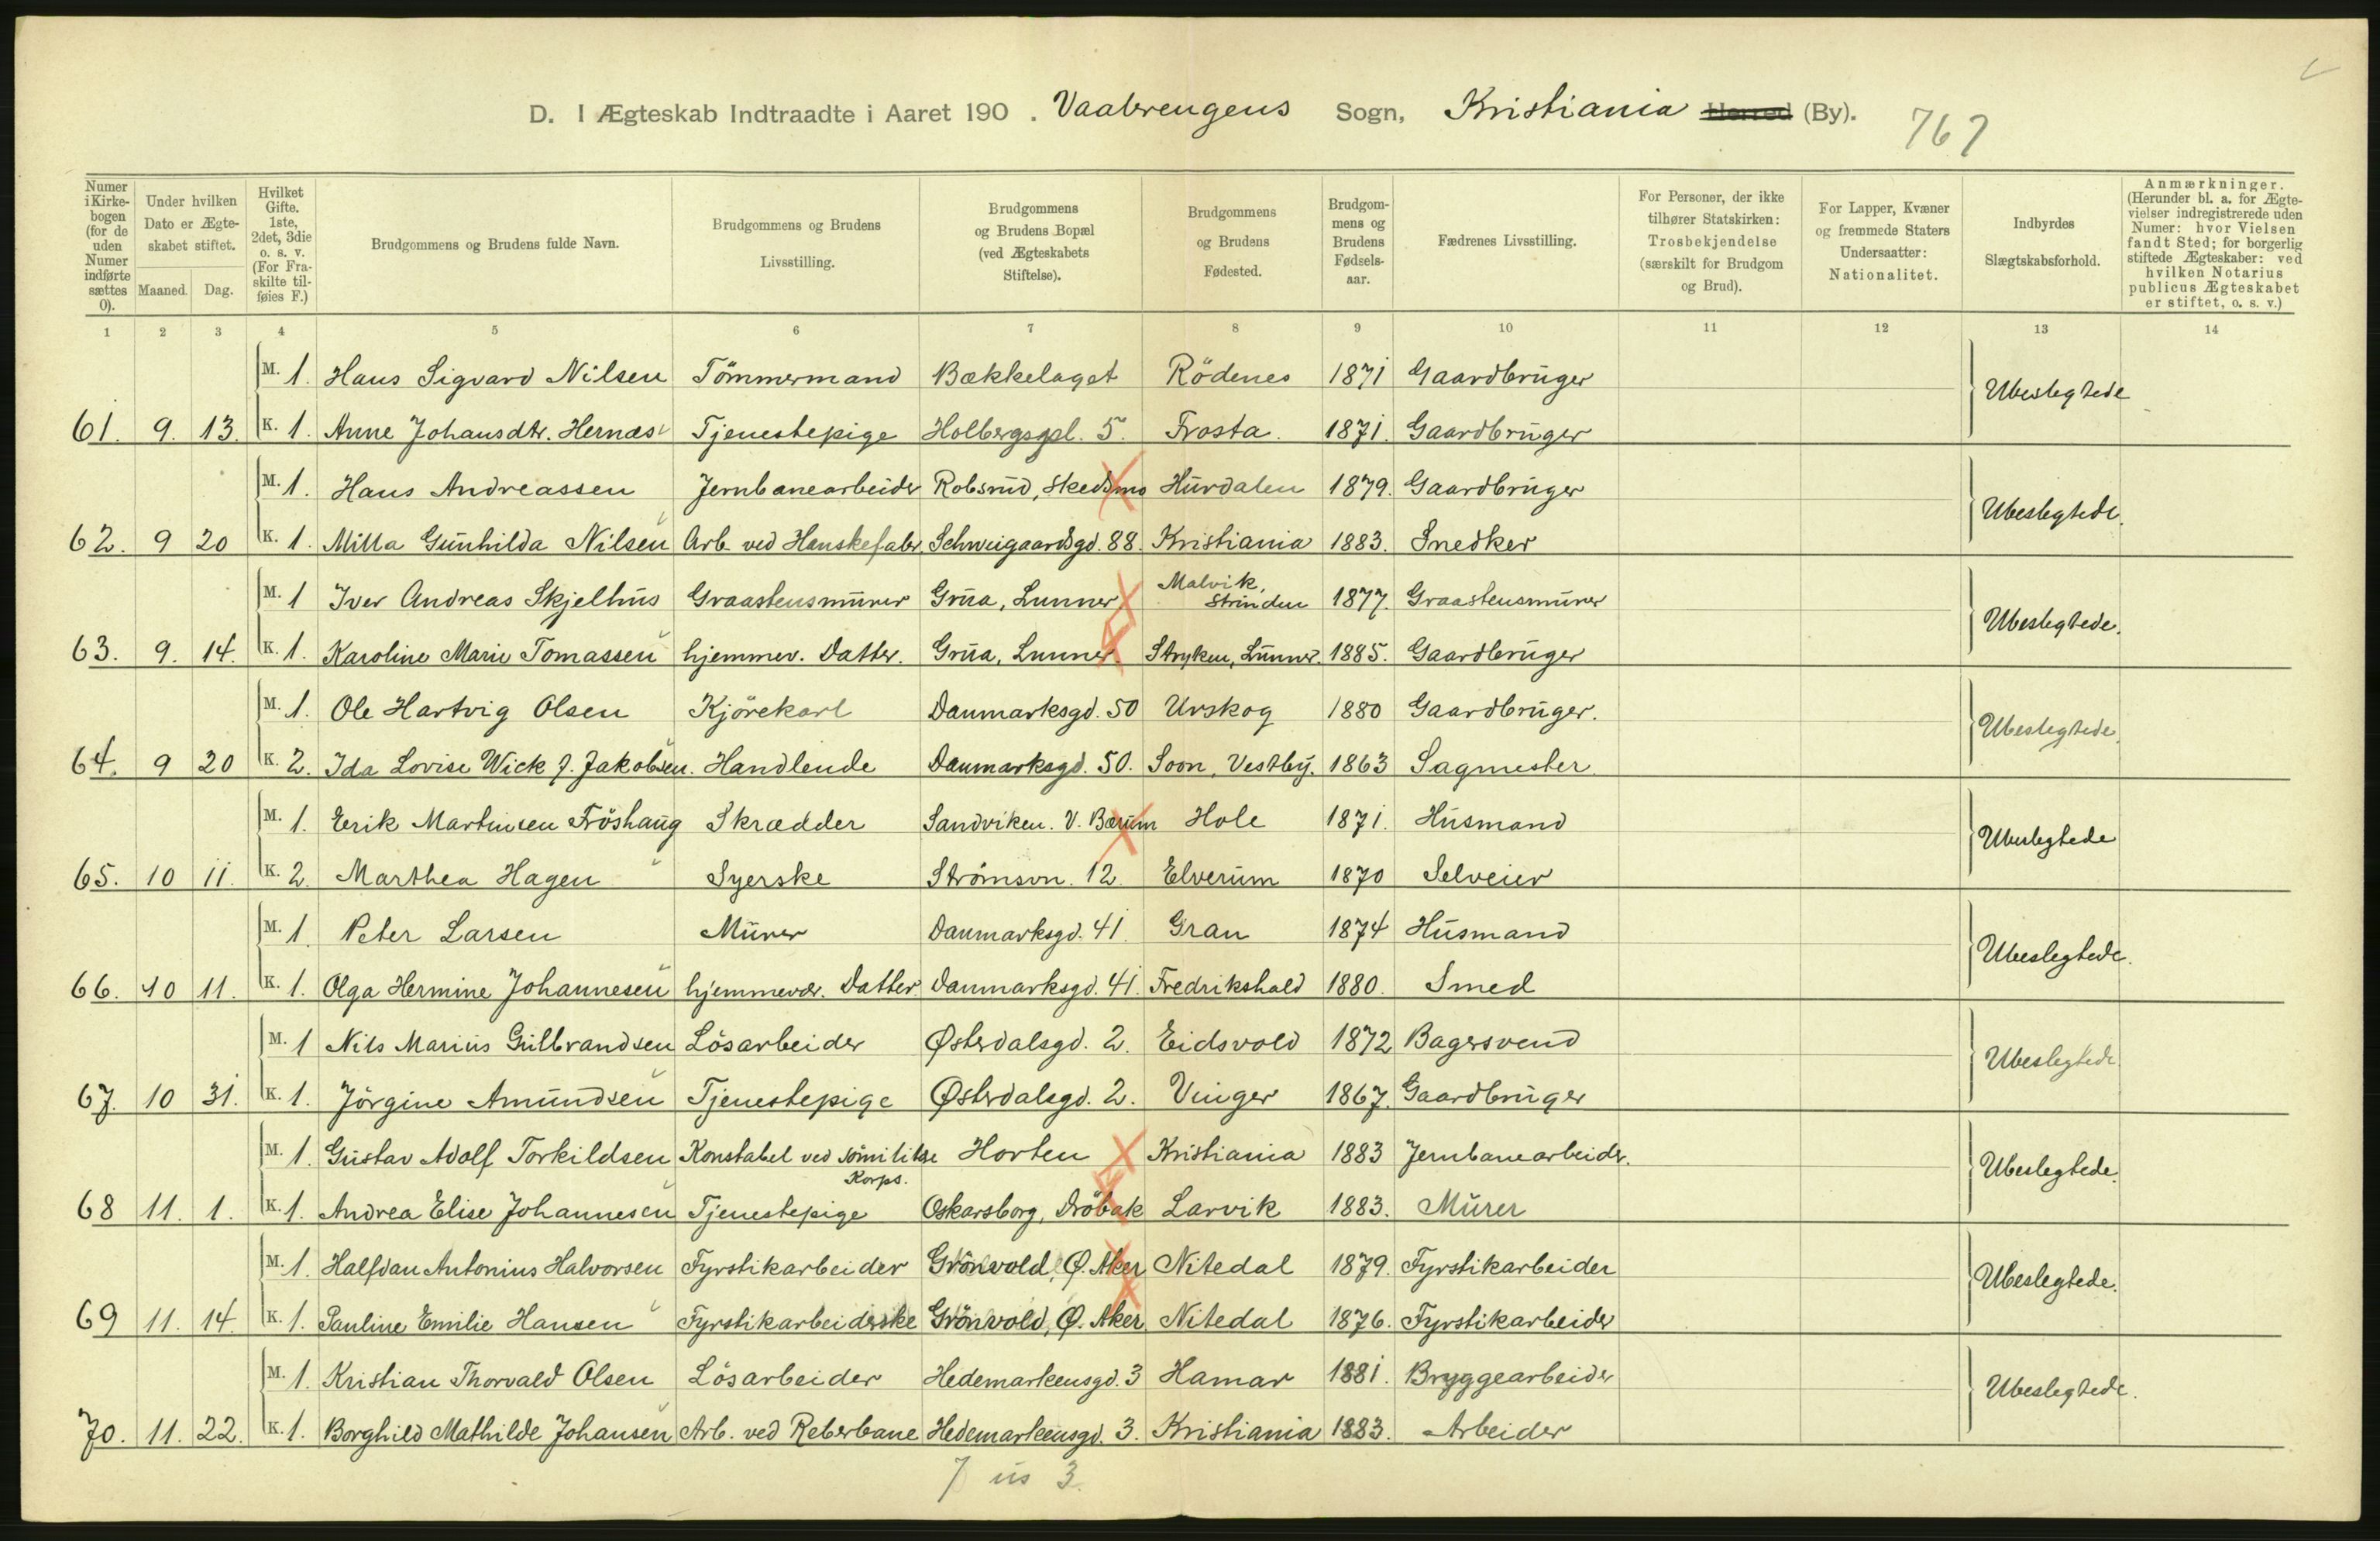 D. I Ægteskab Indtraadte i Aaret 190 . Vaalerengens Sogn, Kristiania Herred (By). 767
Numer i Kirkebogen (for de uden Numer indførte sættes 0). | Under hvilken Dato er Ægteskabet stiftet. Maaned. Dag. | Hvilket Gifte. 1ste, 2det, 3die o. s. v. (For Fraskilte tilføies F.) | Brudgommens og Brudens fulde Navn. | Brudgommens og Brudens Livsstilling. | Brudgommens og Brudens Bopæl (ved Ægteskabets Stiftelse). | Brudgommens og Brudens Fødested. | Brudgommens og Brudens Fødselsaar. | Fædrenes Livsstilling. | For Personer, der ikke tilhører Statskirken: Trosbekjendelse (særskilt for Brudgom og Brud). | For Lapper, Kvæner og fremmede Staters Undersaatter: Nationalitet. | Indbyrdes Slægtskabsforhold. | Anmærkninger. (Herunder bl. a. for Ægtevielser indregistrerede uden Numer: hvor Vielsen fandt Sted; for borgerlig stiftede Ægteskaber: ved hvilken Notarius publicus Ægteskabet er stiftet, o. s. v.)
1 2 3 4 5 6 7 8 9 10 11 12 13 14
M. 1. Hans Sigvard Nilsen Tömmermand Bækkelaget Rödenes 1871 Gaardbruger Ubeslegtede
61. 9. 13. K. 1. Anne Johansdtr. Hernæs Tjenestepige Holbergspl. 5. Frosta. 1871. Gaardbruger
M. 1. Hans Andreassen Jernbanearbeider Robsrud, Skedsmo Hurdalen 1879. Gaardbruger Ubeslegtede.
62. 9 20 K. 1. Milla Gunhilda Nilsen Arb. ved Hanskefabr. Schweigaardsgd. 88. Kristiania 1883. Snedker
M. 1 Iver Andreas Skjelhus Graastensmurer Grua, Lunner Malvik, Strinden 1877. Graastensmurer Ubeslegtede.
63. 9. 14. K. 1. Karoline Marie Tomassen hjemmev. Datter. Grua, Lunner. Stryken, Lunner. 1885. Gaardbruger
M. 1. Ole Hartvig Olsen Kjörekarl Danmarksgd. 50 Urskog 1880 Gaardbruger. Ubeslegtede.
64. 9 20 K. 2. Ida Lovise Wick f. Jakobsen. Handlende Danmarksgd. 50. Soon, Vestby. 1863 Sagmester.
M. 1. Erik Martinsen Fröshaug Skrædder Sandviken. V. Bærum Hole 1871. Husmand Ubeslegtede
65. 10 11. K. 2. Marthea Hagen Syerske Strömsvn. 12. Elverum 1870 Selveier
M. 1. Peter Larsen Murer Danmarksgd. 41. Gran 1874 Husmand Ubeslegtede.
66. 10 11. K. 1. Olga Hermine Johannesen hjemmevær. Datter Danmarksgd. 41. Fredrikshald 1880. Smed
M. 1 Nils Marius Gulbrandsen Lösarbeider Østerdalsgd. 2. Eidsvold 1872 Bagersvend Ubeslegtede
67. 10 31. K. 1. Jörgine Amundsen Tjenestepige Østerdalsgd. 2. Vinger 1867. Gaardbruger
M. 1. Gustav Adolf Torkildsen Konstabel ved sömilitære Korps. Horten Kristiania 1883 Jernbanearbeider. Ubeslegtede.
68 11. 1. K. 1. Andrea Elise Johannesen Tjenestepige Oskarsborg, Dröbak Larvik 1883. Murer
M. 1. Halfdan Antonius Halvorsen Fyrstikarbeider Grönvold, Ø. Aker Nitedal 1879. Fyrstikarbeider Ubeslegtede.
69 11. 14. K. 1. Pauline Emilie Hansen Fyrstikarbeiderske Grönvold, Ø. Aker. Nitedal 1876. Fyrstikarbeider
M. 1. Kristian Thorvald Olsen Lösarbeider Hedemarkensgd. 3 Hamar 1881. Bryggearbeider Ubeslegtede.
70. 11. 22. K. 1. Borghild Mathilde Johansen Arb. ved Reberbane Hedemarkensgd. 3. Kristiania 1883. Arbeider
7 us 3.